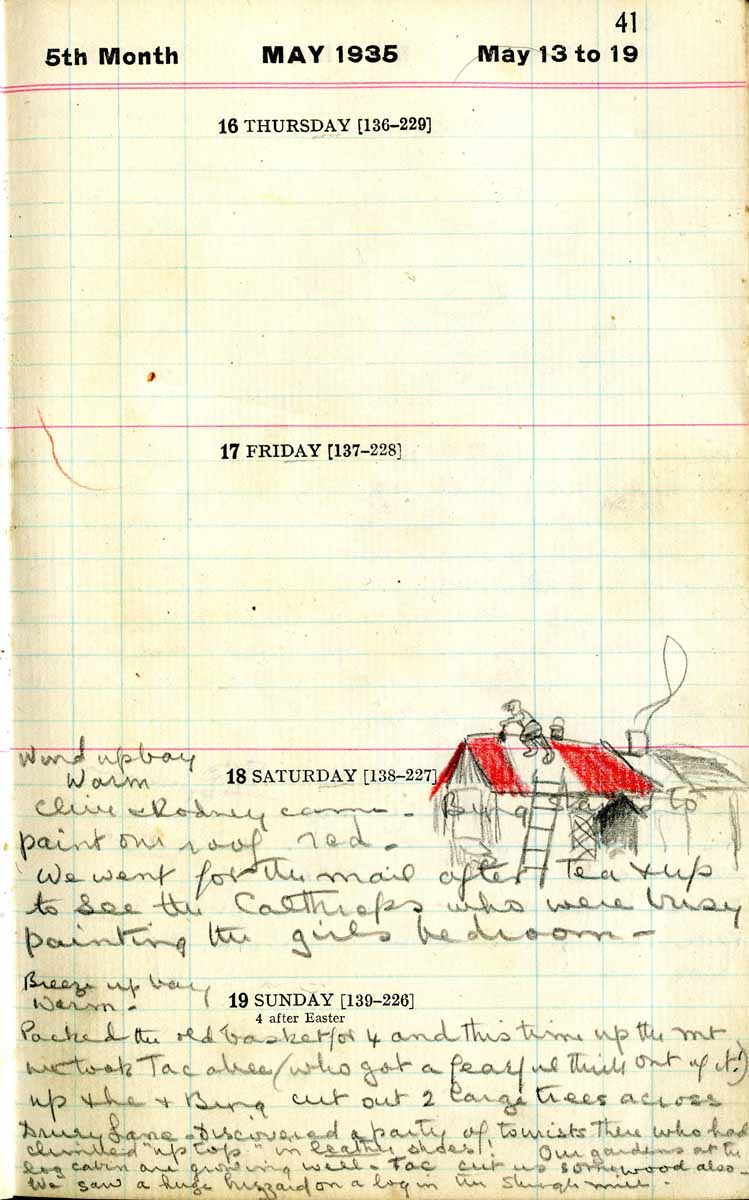 41
5th Month MAY 1935 May 13 to 19
16 THURSDAY [136–229]
17 FRIDAY [137–228]
Wind up bay
Warm
18 SATURDAY [138–227]
Clive & Rodney came - Bung started to
paint our roof red -
We went for the mail after Tea & up
to see the Calthrops who were busy
painting the girls bedroom -
Breeze up bay
Warm -
19 SUNDAY [139–226]
4 after Easter
Packed the old basket for 4 and this time up the mt
we took Tac (who got a fearful thrill out of it!)
up & he & Bung cut out 2 large trees across
Drury Lane - Discovered a party of tourists there who had
climbed "up top" in leather shoes! Our gardens at the
log cabin are growing well - Tac cut us some wood also -
We saw a huge buzzard on a log in the Slough mill -